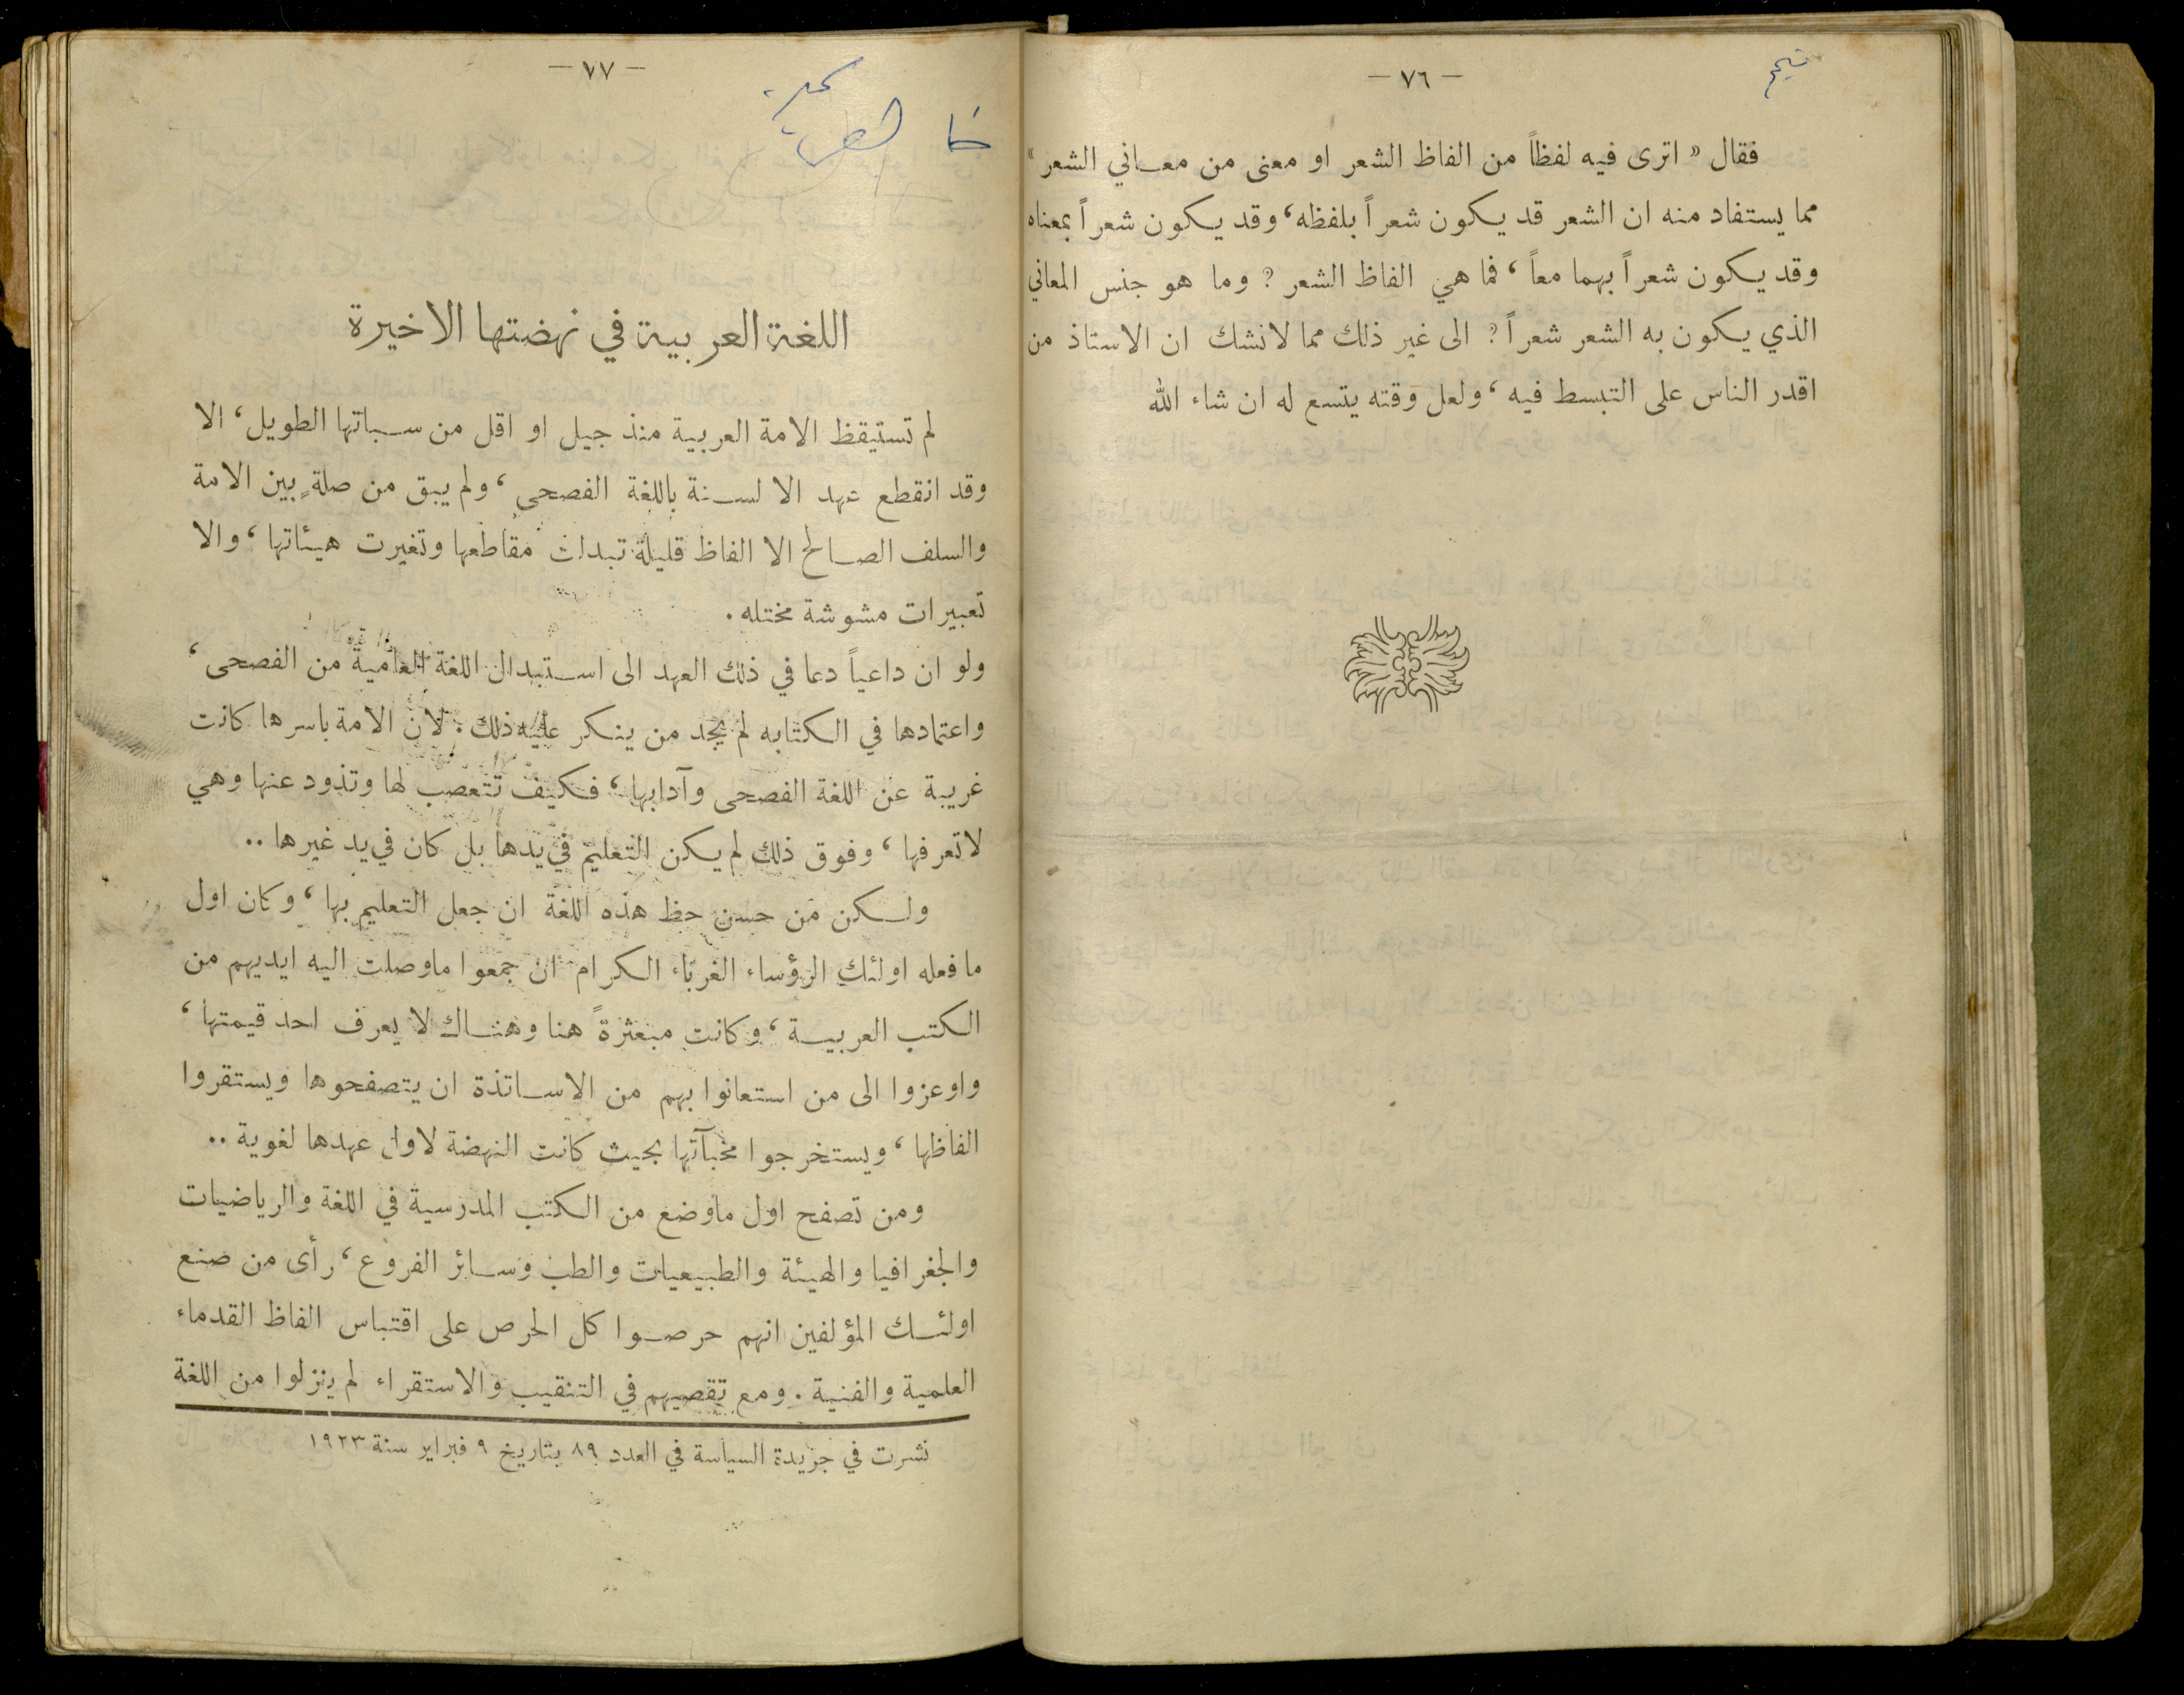 — ٧٦ —
فقال « اترى فيه لفظاً من الفاظ الشعر او معنى من معاني الشعر »
مما يستفاد منه ان الشعر قد يكون شعراً بلفظه، وقد يكون شعراً بمعناه
وقد يكون شعراً بهما معاً، فما هي الفاظ الشعر؟ وما هو جنس المعاني
الذي يكون به الشعر شعراً؟ الى غير ذلك مما لانشك ان الاستاذ من
اقدر الناس على التبسط فيه، ولعل وقته يتسع له ان شاء الله
— ٧٧ —
اللغة العربية في نهضتها الاخيرة
لم تستيقظ الامة العربية منذ جيل او اقل من سباتها الطويل، الا
وقد انقطع عهد الالسنة باللغة الفصحى، ولم يبق من صلةٍ بين الامة
والسلف الصالح الا الفاظ قليلة تبدلت مقاطعها وتغيرت هيئاتها، والا
تعبيرات مشوشة مختله .
ولو ان داعياً دعا في ذلك العهد الى استبدال اللغة العامية من الفصحى،
واعتمادها في الكتابه لم يجد من ينكر عليه ذلك . لان الامة باسرها كانت
غريبة عن اللغة الفصحى وآدابها، فكيف تتعصب لها وتذود عنها وهي
لاتعرفها، وفوق ذلك لم يكن التعليم في يدها بل كان في يد غيرها ..
ولكن من حسن حظ هذه اللغة ان جعل التعليم بها، وكان اول
مافعله اولئك الرؤساء الغرباء الكرام ان جمعوا ماوصلت اليه ايديهم من
الكتب العربية، وكانت مبعثرةً هنا وهناك لا يعرف احد قيمتها،
واوعزوا الى من استعانوا بهم من الاساتذة ان يتصفحوها ويستقروا
الفاظها، ويستخرجوا مخبآتها بحيث كانت النهضة لاول عهدها لغوية ..
ومن تصفح اول ماوضع من الكتب المدرسية في اللغة والرياضيات
والجغرافيا والهيئة والطبيعيات والطب وسائر الفروع، رأى من صنع
اولئك المؤلفين انهم حرصوا كل الحرص على اقتباس الفاظ القدماء
العلمية والفنية . ومع تقصيهم في التنقيب والاستقراء لم ينزلوا من اللغة
نشرت في جريدة السياسة في العدد ٨٩ بتاريخ ٩ فبراير سنة ١٩٢٣